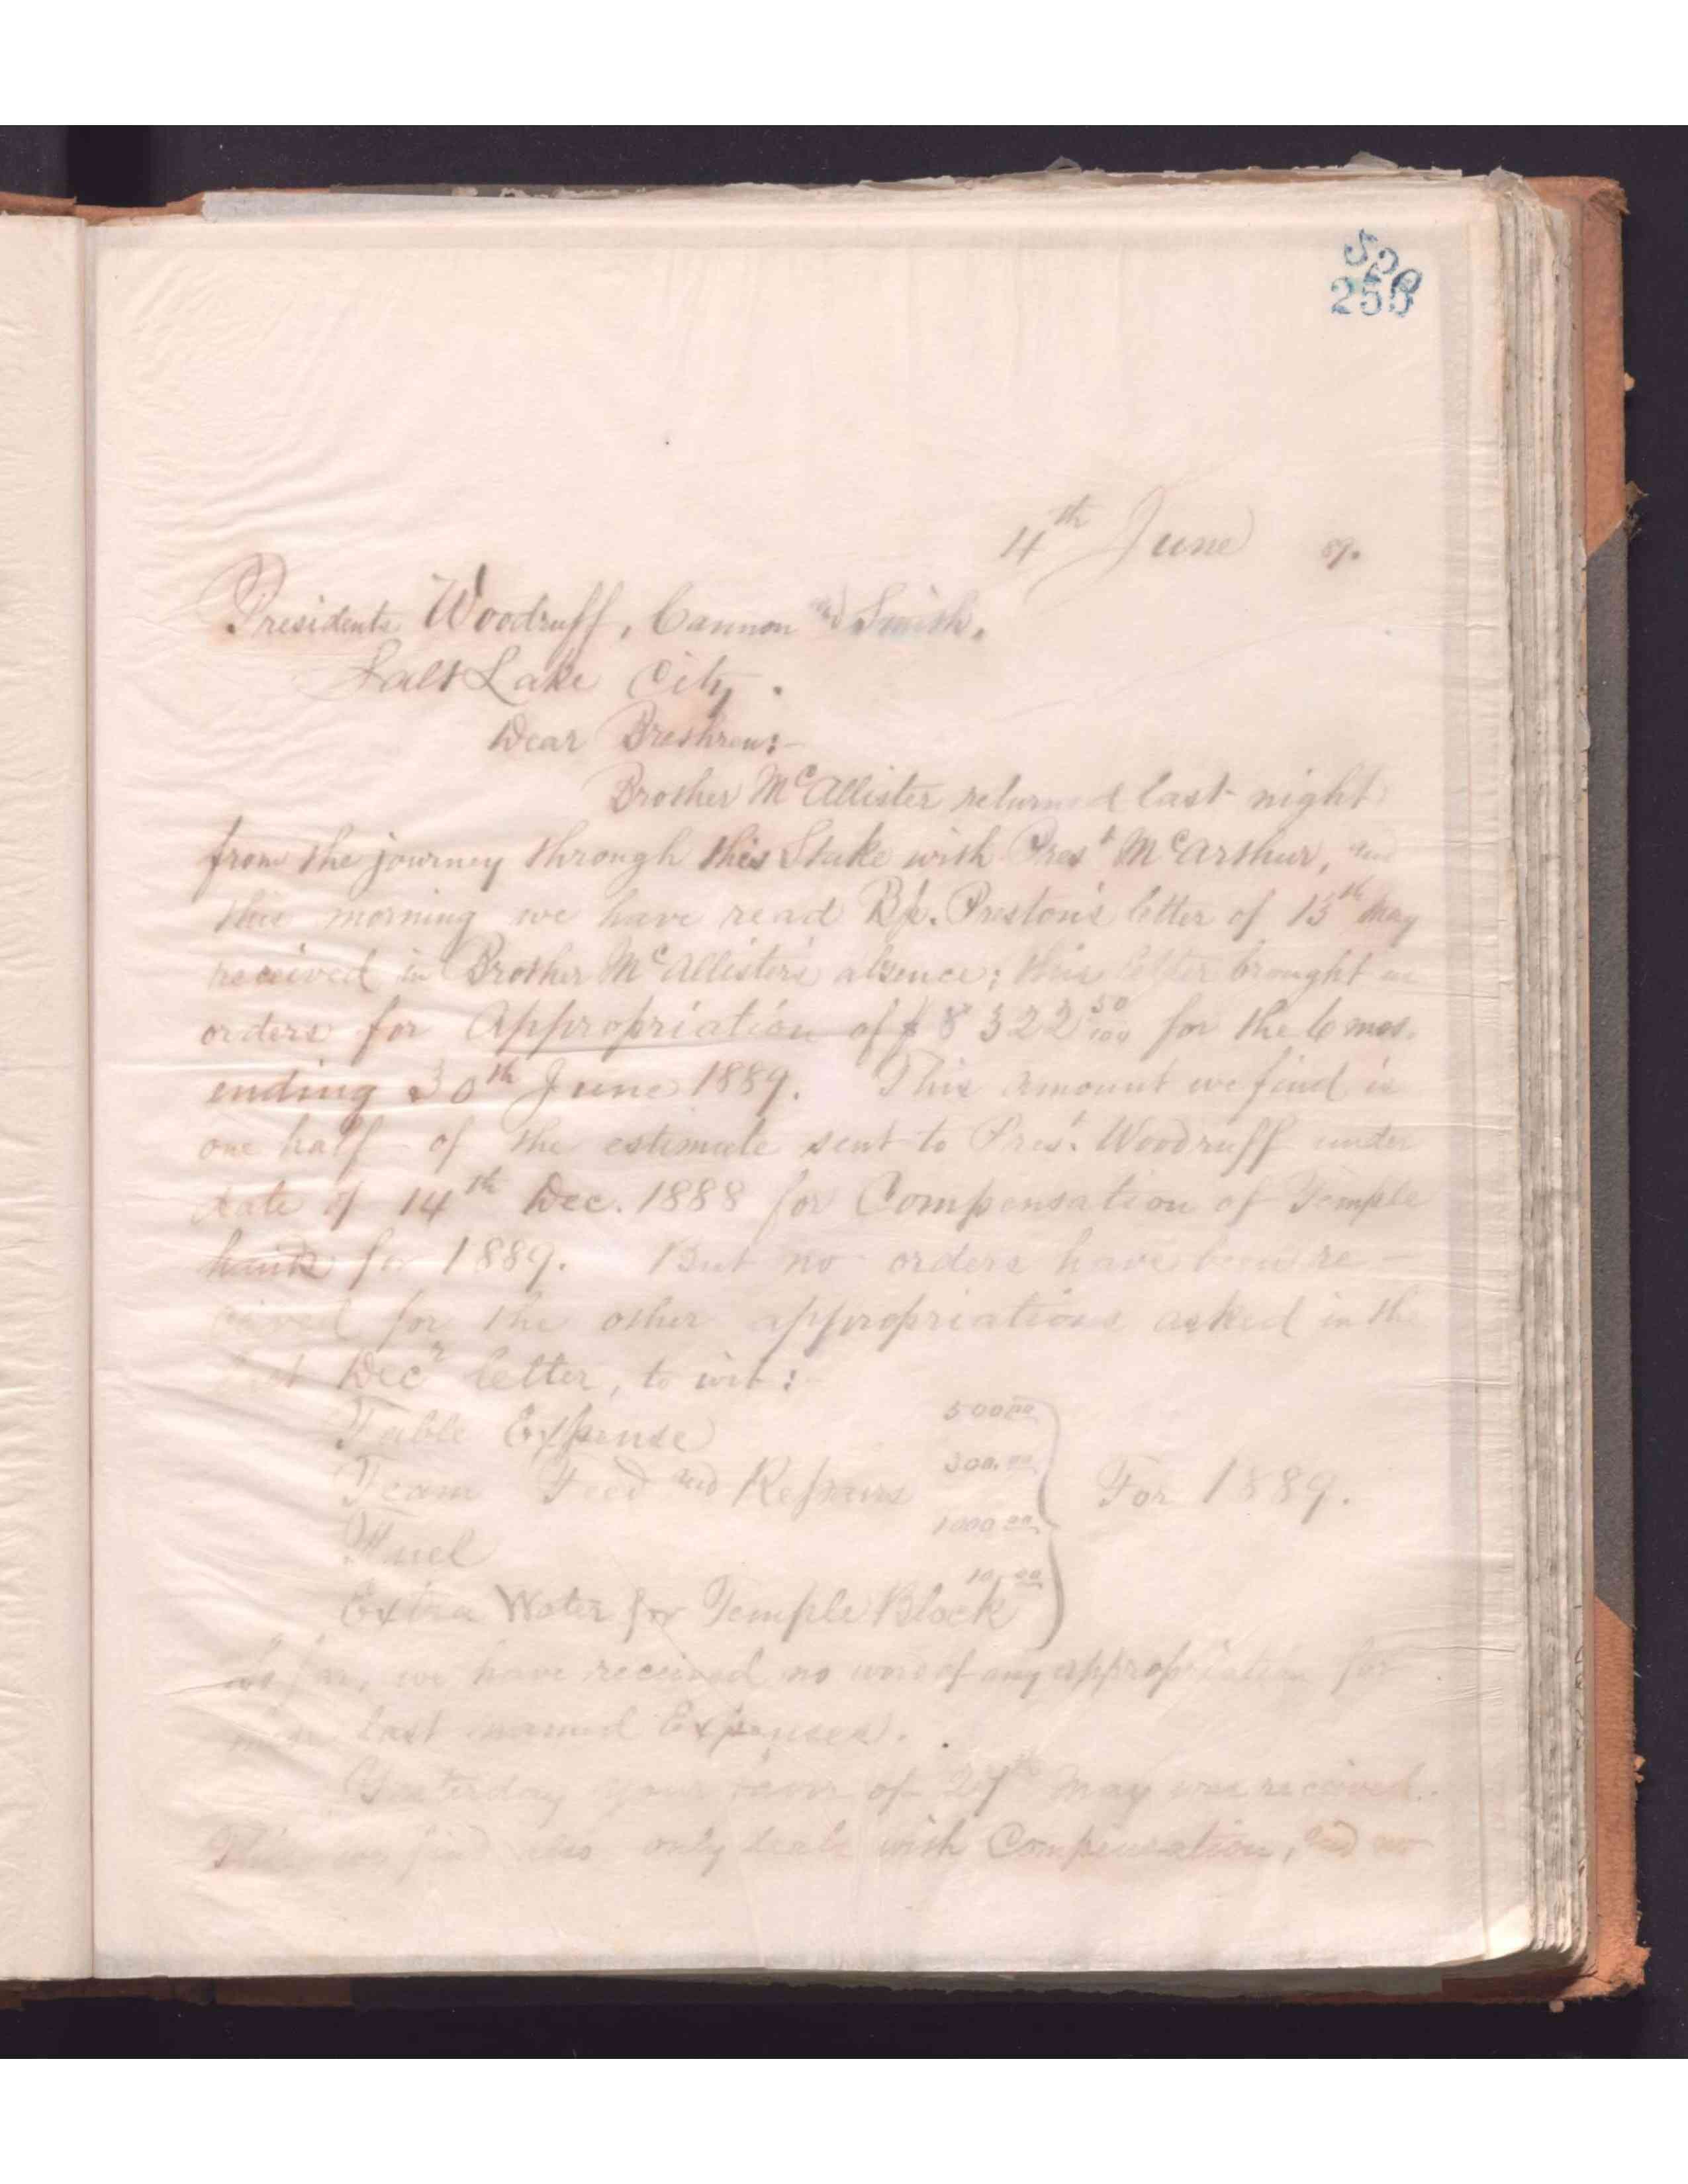 4th June 89.
Presidents Woodruff, Cannon and Smith.
Salt Lake City.
Dear Brethren:-
Brother McAllister returned last night
from the journey through this Stake with Prest McArthur, and
this morning we have read Bp. Preston's letter of 13th May
received in Brother McAllister's absence; this letter brought us
orders for Appropriation of $8322 50/100 for the 6 mos.
ending 30th June 1889. This amount we find is
one half of the estimate sent to Prest. Woodruff under
date of 14th Dec. 1888 for Compensation of Temple
hands for 1889. But no orders have been re-
ceived for the other appropriations asked in the
last Decr letter, to wit:
Table Expense 500.00
Team Feed and Repairs 300.00 For 1889.
Fuel 1000.00
Extra Water for Temple Block 10.00
So far, we have received no word of any appropriation for
last named Expenses.
Yesterday your favor of 27th May was received.
This we find also only deals with Compensation, and no